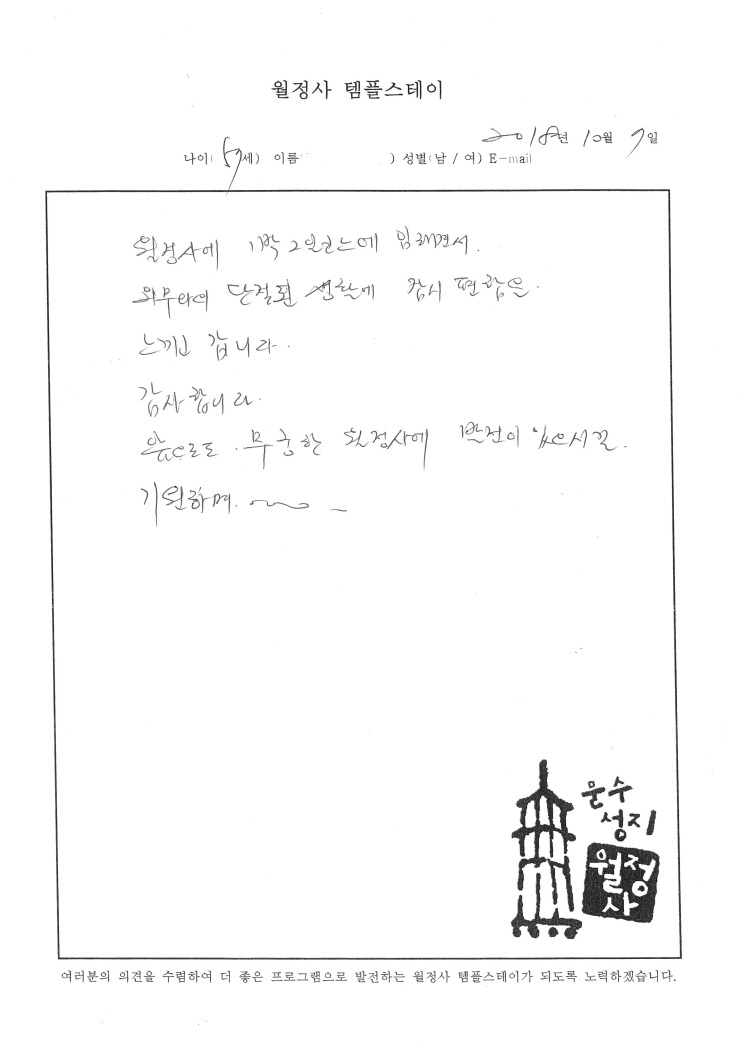 월정사 템플스테이
2018년 10월 9일
나이( 59세) 이름( ) 성별(남 / 여) E-mail
월정사에 1박 2일코스에 임하면서.
외부와의 단절된 생활에 잠시 편함을.
느끼고 갑니다.
감사합니다.
앞으로도. 무궁한 월정사에 발전이 있으시길.
기원하며. ~
문수
성지
월정
사
여러분의 의견을 수렴하여 더 좋은 프로그램으로 발전하는 월정사 템플스테이가 되도록 노력하겠습니다.